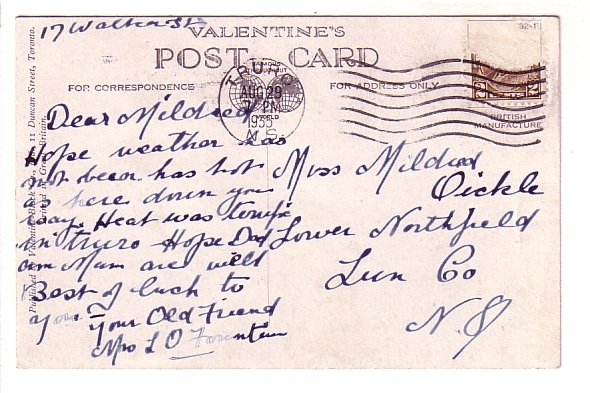 17 Walker St
VALENTINE'S
POST CARD
FAMOUS THROUGHOUT THE WORLD
FOR CORRESPONDENCE
FOR ADDRESS ONLY
32-
BRITISH
MANUFACTURE
TRURO
AUG 29
7 PM
1933
N.S.
Dear Mildred
Hope weather has
not been has hot
as here down your
way. Heat was terrific
in Truro Hope Dad
an Mum are well
Best of luck to
you
Your Old Friend
Mrs L O Fountain
Miss Mildred
Oickle
Lower Northfield
Lun Co
N.S
Published by Valentine-Black Co., Ltd., 11 Duncan Street, Toronto.
Printed in Great Britain.